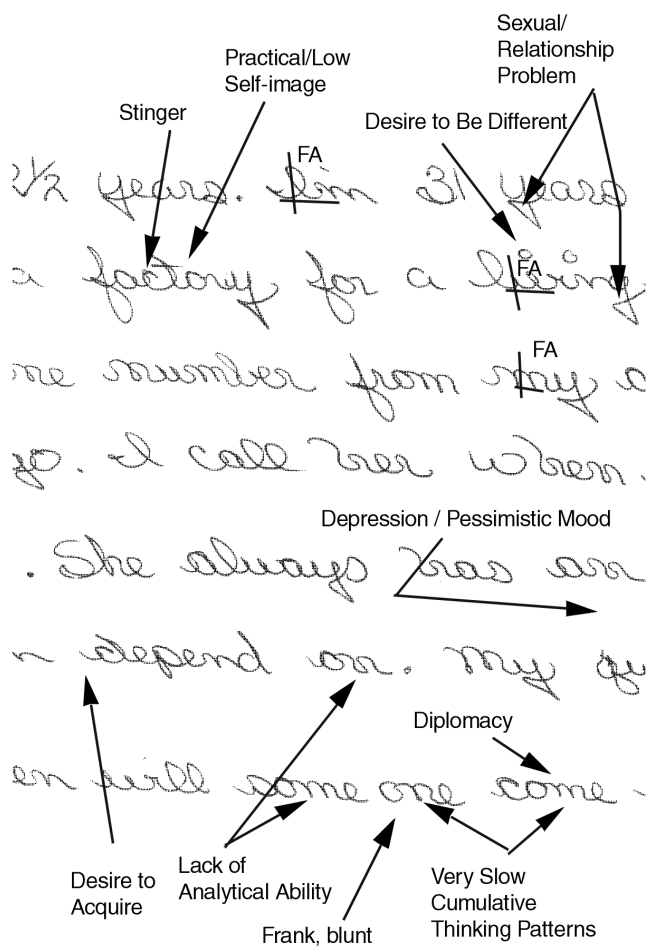 Sexual/
Relationship
Problem
Practical/Low
Self-image
Stinger
Desire to Be Different
FA
2½ years. I'm 31 years
a factory for a living
FA
FA
me number from my a
go. I call her when.
Depression / Pessimistic Mood
. She always has an
n depend on. My gu
Diplomacy
en will some one come
Desire to
Acquire
Lack of
Analytical Ability
Frank, blunt
Very Slow
Cumulative
Thinking Patterns